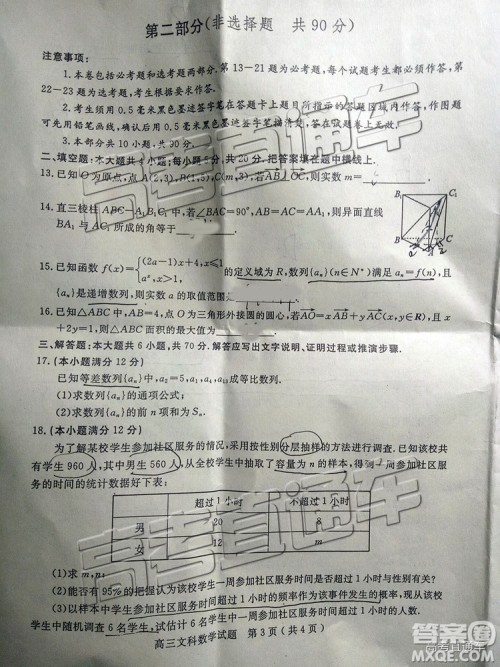 第二部分(非选择题 共90分)
注意事项:
1.本卷包括必考题和选考题两部分.第13-21题为必考题,每个试题考生都必须作答,第
22-23题为选考题,考生根据要求作答.
2.考生须用0.5毫米黑色墨迹签字笔在答题卡上题目所指示的答题区域内作答,作图题
可先用铅笔画线,确认后用0.5毫米黑色墨迹签字笔描清楚.答在试卷上无效.
3.本部分共10小题,共90分.
二、填空题:本大题共4小题;每小题5分,共20分.把答案填在题中横线上.
13.已知O为原点,B(1,5),C(m,3),若 实数m=
14.直三棱柱ABC-A₁B₁C₁中,若∠BAC=90°,AB=AC=AA₁,则异面直线
BA₁与AC₁所成的角等于
B₁ C₁
B C
15.已知函数f(x)={(2a-1)x+4,x≤1
aˣ,x>1, 的定义域为R,数列{aₙ}(n∈N*)满足aₙ=f(n),且
{aₙ}是递增数列,则实数a的取值范围
16.已知△ABC中,AB=4,点O为三角形外接圆的圆心,若AO=xAB+yAC(x,y∈R),且
x+2y=1,则△ABC面积的最大值为
三、解答题:本大题共6小题,共70分.解答应写出文字说明、证明过程或推演步骤.
17.(本小题满分12分)
已知等差数列{aₙ}中,a₂=5,a₁,a₄,a₁₃成等比数列.
(1)求数列{aₙ}的通项公式;
(2)求数列{aₙ}的前n项和为Sₙ.
18.(本小题满分12分)
为了解某校学生参加社区服务的情况,采用按性别分层抽样的方法进行调查.已知该校共
有学生960人,其中男生560人,从全校学生中抽取了容量为n的样本,得到一周参加社区服
务的时间的统计数据好下表:
超过1小时 不超过1小时
男 20 8
女 12 m
(1)求m,n;
(2)能否有95%的把握认为该校学生一周参加社区服务时间是否超过1小时与性别有关?
(3)以样本中学生参加社区服务时间超过1小时的频率作为该事件发生的概率,现从该校
学生中随机调查6名学生,试估计6名学生中一周参加社区服务时间超过1小时的人数.
高三文科数学试题 第3页(共4页)
高考直通车
高考直通车
高考直通车
答案圈